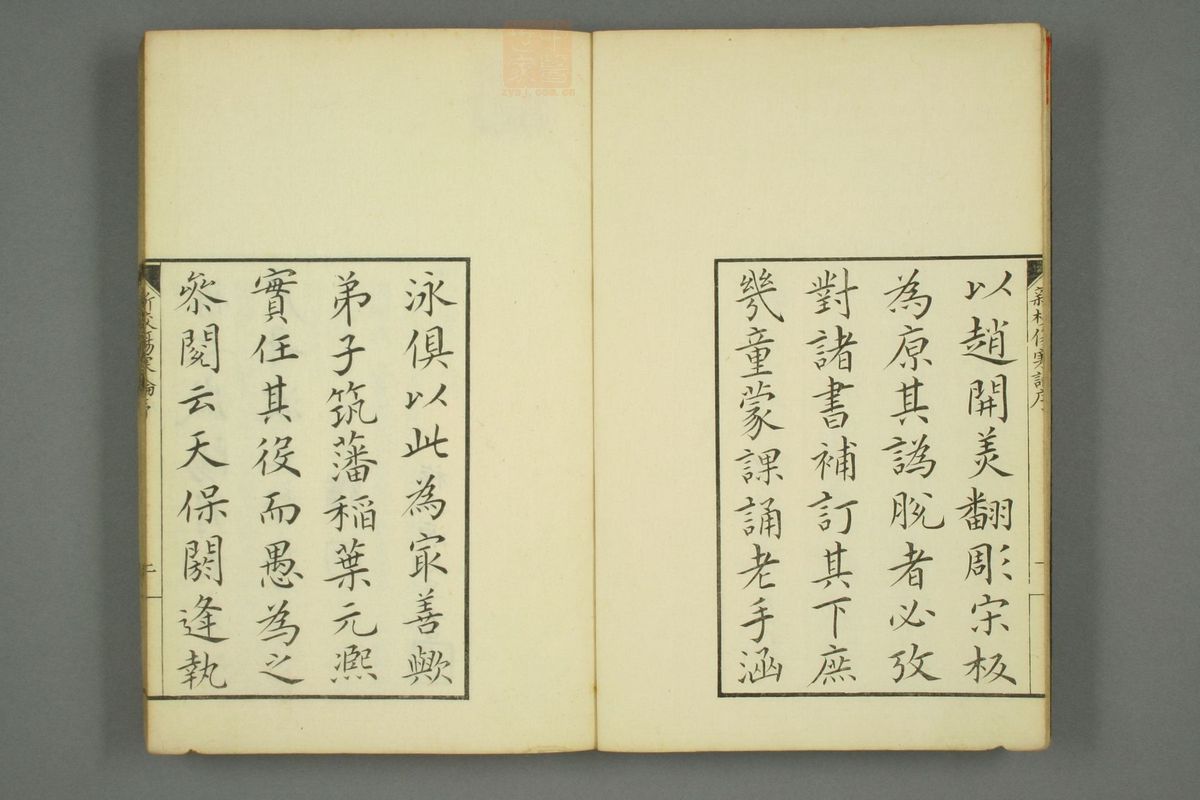 以趙開美翻彫宋板
為原其譌脫者必攷
對諸書補訂其下庶
幾童蒙課誦老手涵
泳俱以此為冣善歟
弟子筑藩稲葉元熈
實任其役而愚為之
叅閱云天保閼逢執
新校傷寒論序
新校傷寒論序
一
二
zysj.com.cn